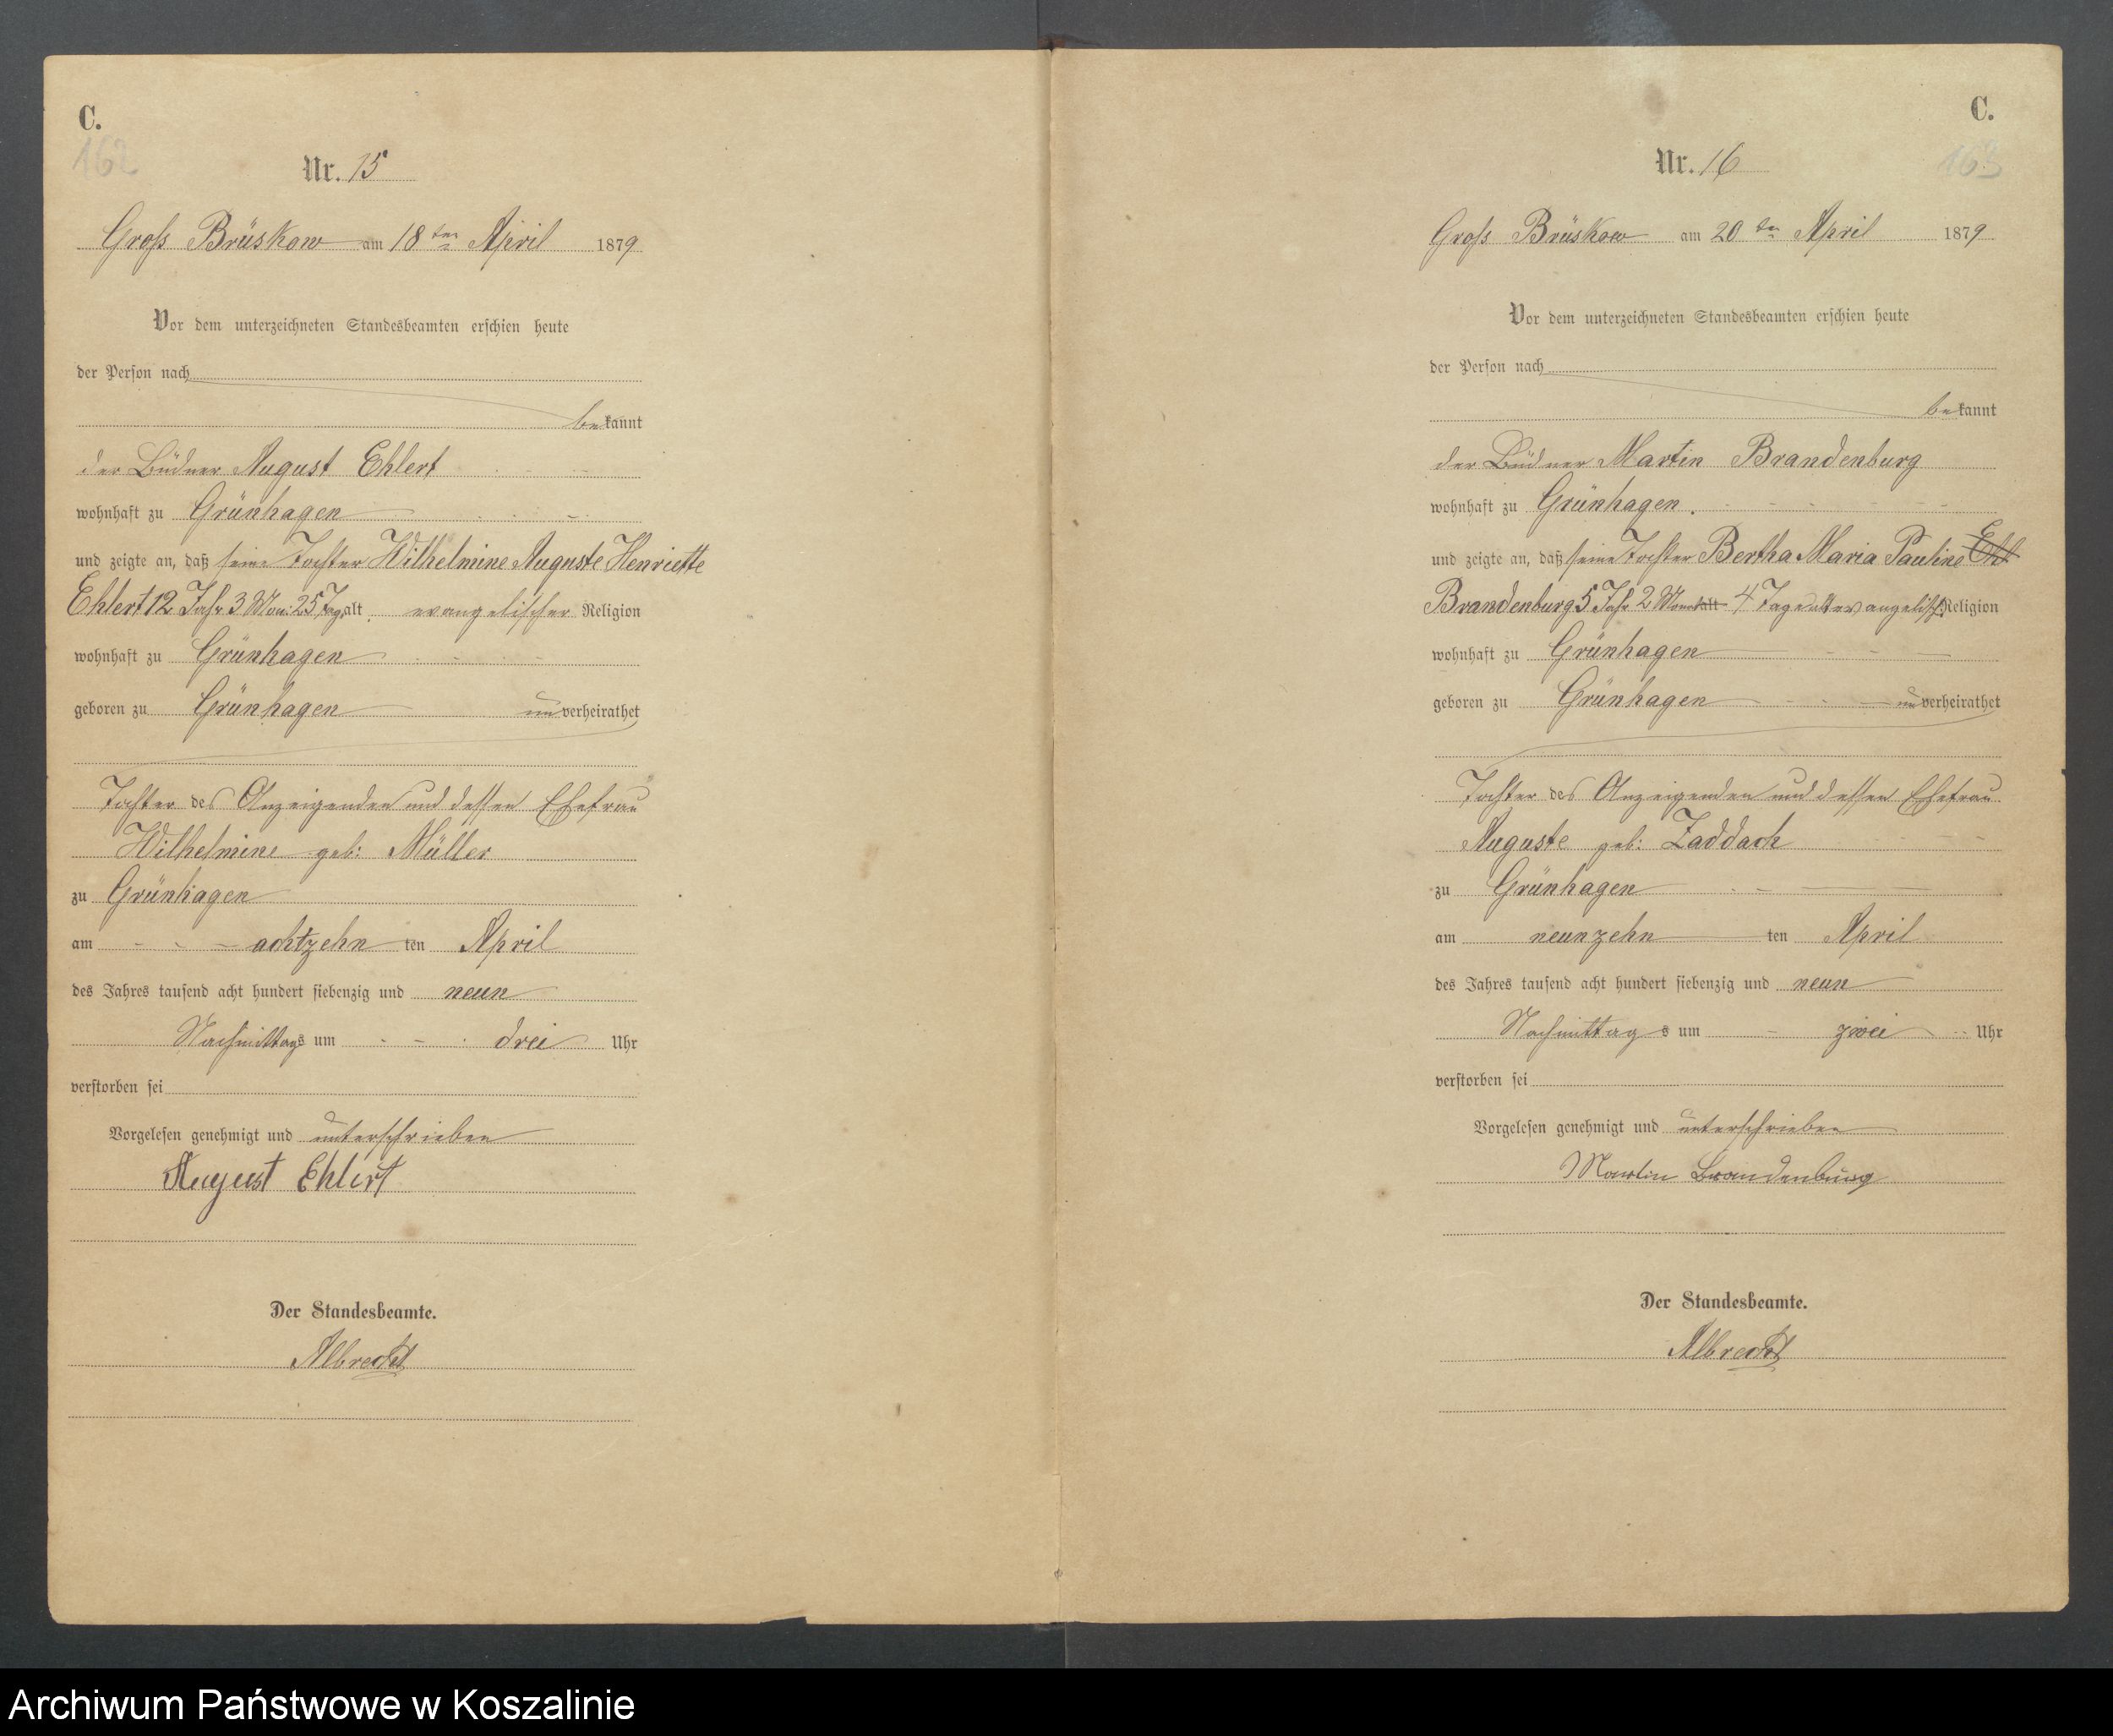 C.
162
Nr. 15
Gross Brüskow am 18ten April 1879
Vor dem unterzeichneten Standesbeamten erschien heute
der Person nach
bekannt
der Büdner August Ehlert
wohnhaft zu Grünhagen
und zeigte an, daß seine Tochter Wilhelmine Auguste Henriette
Ehlert 12 Jahr 3 Mon: 25 Tag alt evangelischer Religion
wohnhaft zu Grünhagen
geboren zu Grünhagen unverheirathet
Tochter des Anzeigenden und dessen Ehefrau
Wilhelmine geb: Müller
zu Grünhagen
am achtzehn ten April
des Jahres tausend acht hundert siebenzig und neun
Nachmittags um drei Uhr
verstorben sei
Vorgelesen genehmigt und unterschrieben
August Ehlert
Der Standesbeamte.
Albrecht
C.
163
Nr. 16
Gross Brüskow am 20ten April 1879
Vor dem unterzeichneten Standesbeamten erschien heute
der Person nach
bekannt
der Büdner Martin Brandenburg
wohnhaft zu Grünhagen.
und zeigte an, daß seine Tochter Bertha Maria Pauline Ehl
Brandenburg 5 Jahr 2 Monat alt 4 Tage alt evangelisch Religion
wohnhaft zu Grünhagen
geboren zu Grünhagen unverheirathet
Tochter des Anzeigenden und dessen Ehefrau
Auguste geb: Zaddach
zu Grünhagen
am neunzehn ten April
des Jahres tausend acht hundert siebenzig und neun
Nachmittags um zwei Uhr
verstorben sei
Vorgelesen genehmigt und unterschrieben
Martin Brandenburg
Der Standesbeamte.
Albrecht
Archiwum Państwowe w Koszalinie